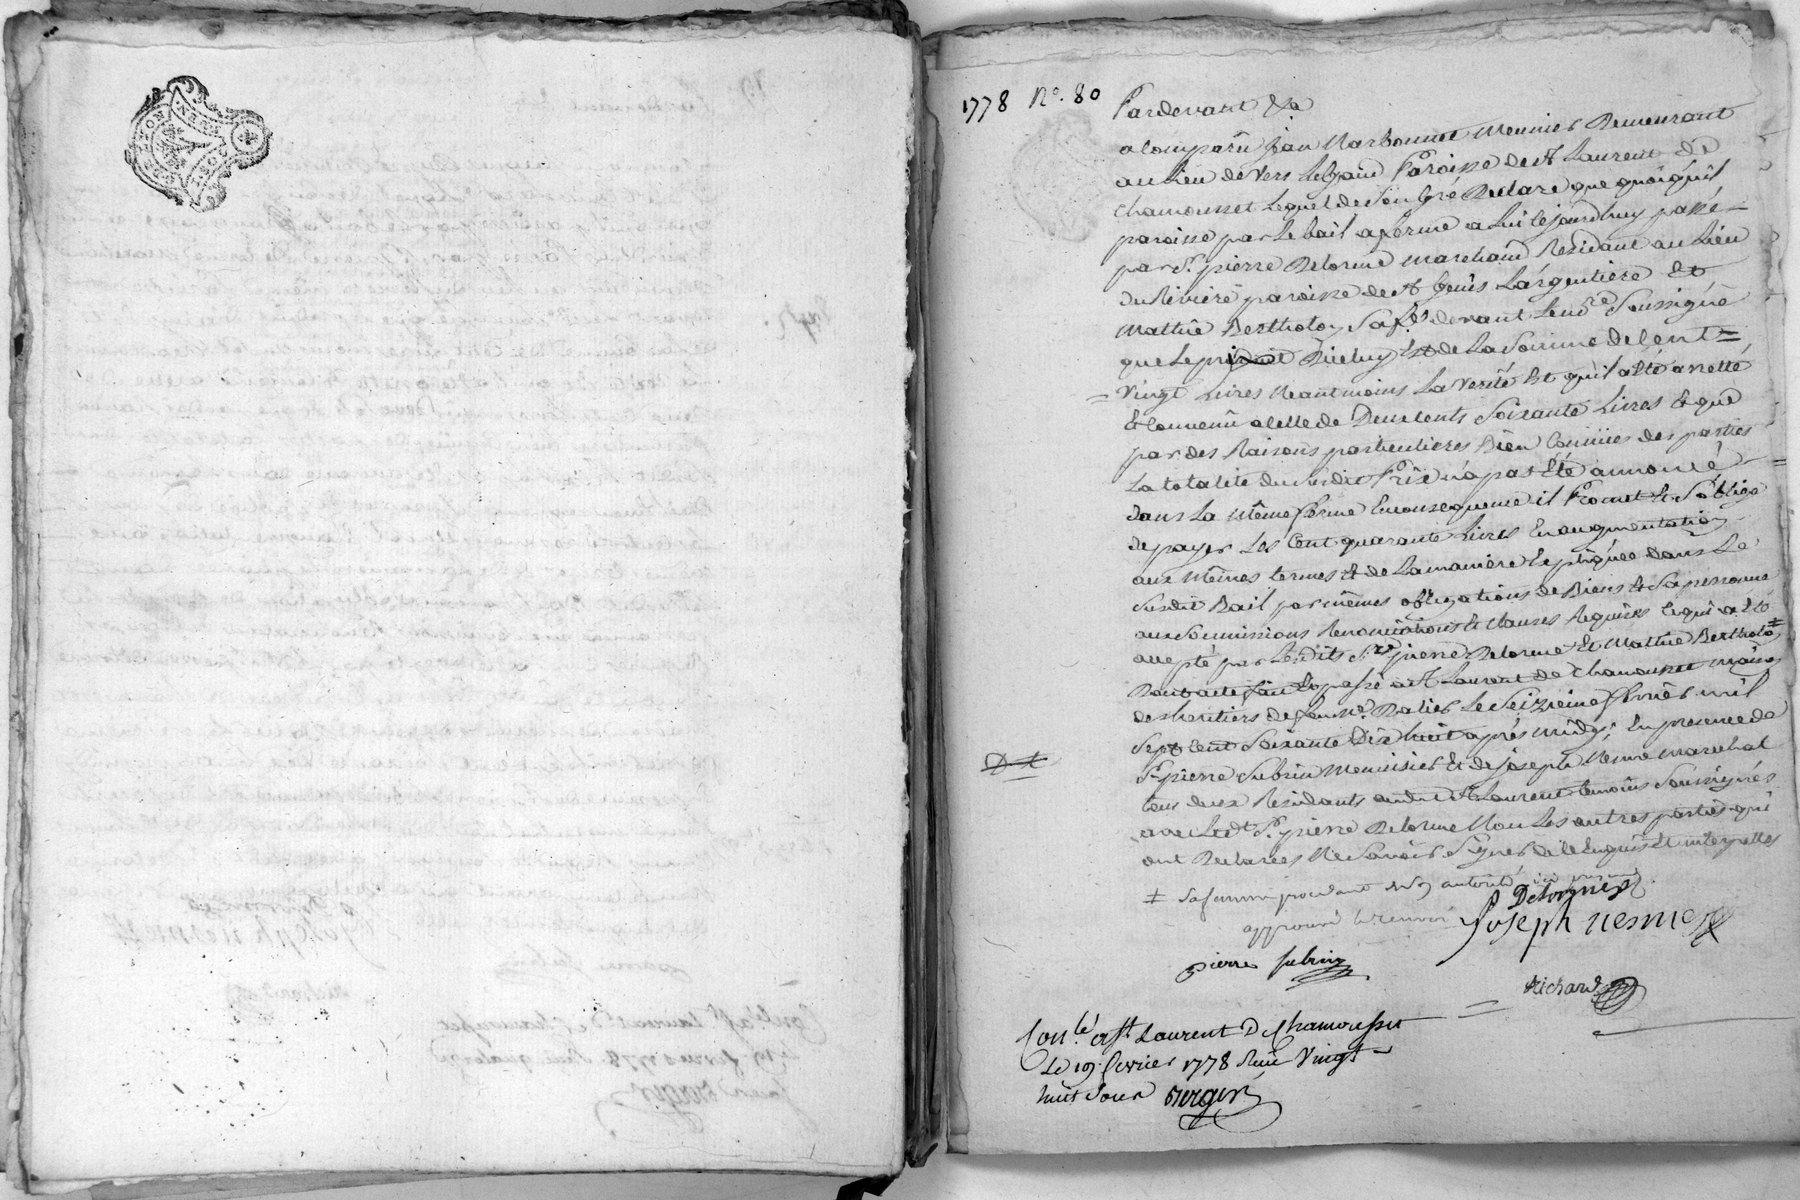 1778 N°. 80
Pardevant &a
a Comparû jean Narbonnet Meunier Demeurant
au Lieu de Vers Paroisse de st Laurent de
Chamousset Lequel de Son Gré Declare que quoiqu'il
paroisse par Le bail a ferme a Lui cejourdhuy passé
par Sr. pierre Delorme Marchand Residant au Lieu
du Riviere paroisse de st Genis Largentiere Et
Mathie Bertholon Sa fe. devant Le nore Soussigné
que Le prix D'icelluy Est de La Somme de Cent
= Vingt Livres Neantmoins La Verité Est qu'il a Eté arretté
Et Convenû a Celle de Deux Cents Soixante Livres Et que
par des Raisons particulieres Bien Connües des parties
La totalité du Susdit Prix n'a pas Eté annoncé
dans La Même ferme En consequence il Promet Et S'oblige
de payer Les Cent quarante Livres En augmentation
aux Mêmes termes Et de La maniere Expliquée dans Le
Susdit Bail par mêmes obligations de Biens Et Sa personne
aux Soumissions Renonciations Et Clauses Requises Ce qui a Eté
accepté par Lesdits Sr. pierre Delorme Et Mathie Bertholon ‡
Dont acte fait Et passé a st Laurent de Chamousset Maison
des heritiers de feu Me. Ratier Le Seizieme fevrier mil
Sept Cent Soixante Dix huit après midy; En presence de
Sr. pierre Subrin Menuisier Et de joseph Nesme marechal
tous deux Residants audit st Laurent temoins Soussignés
avec Ledt. Sr. pierre Delorme Non Les autres parties qui
ont Declarées Ne Savoir Signer de ce Enquis Et interpellés
‡ Sa femme procedant de Son autorité
approuvé Le renvoi
P Delorme
Joseph nesme
pierre subrin
Richard
Con.lé a st Laurent De Chamousset
Le 19 fevrier 1778 Reçu Vingt
huit Sous